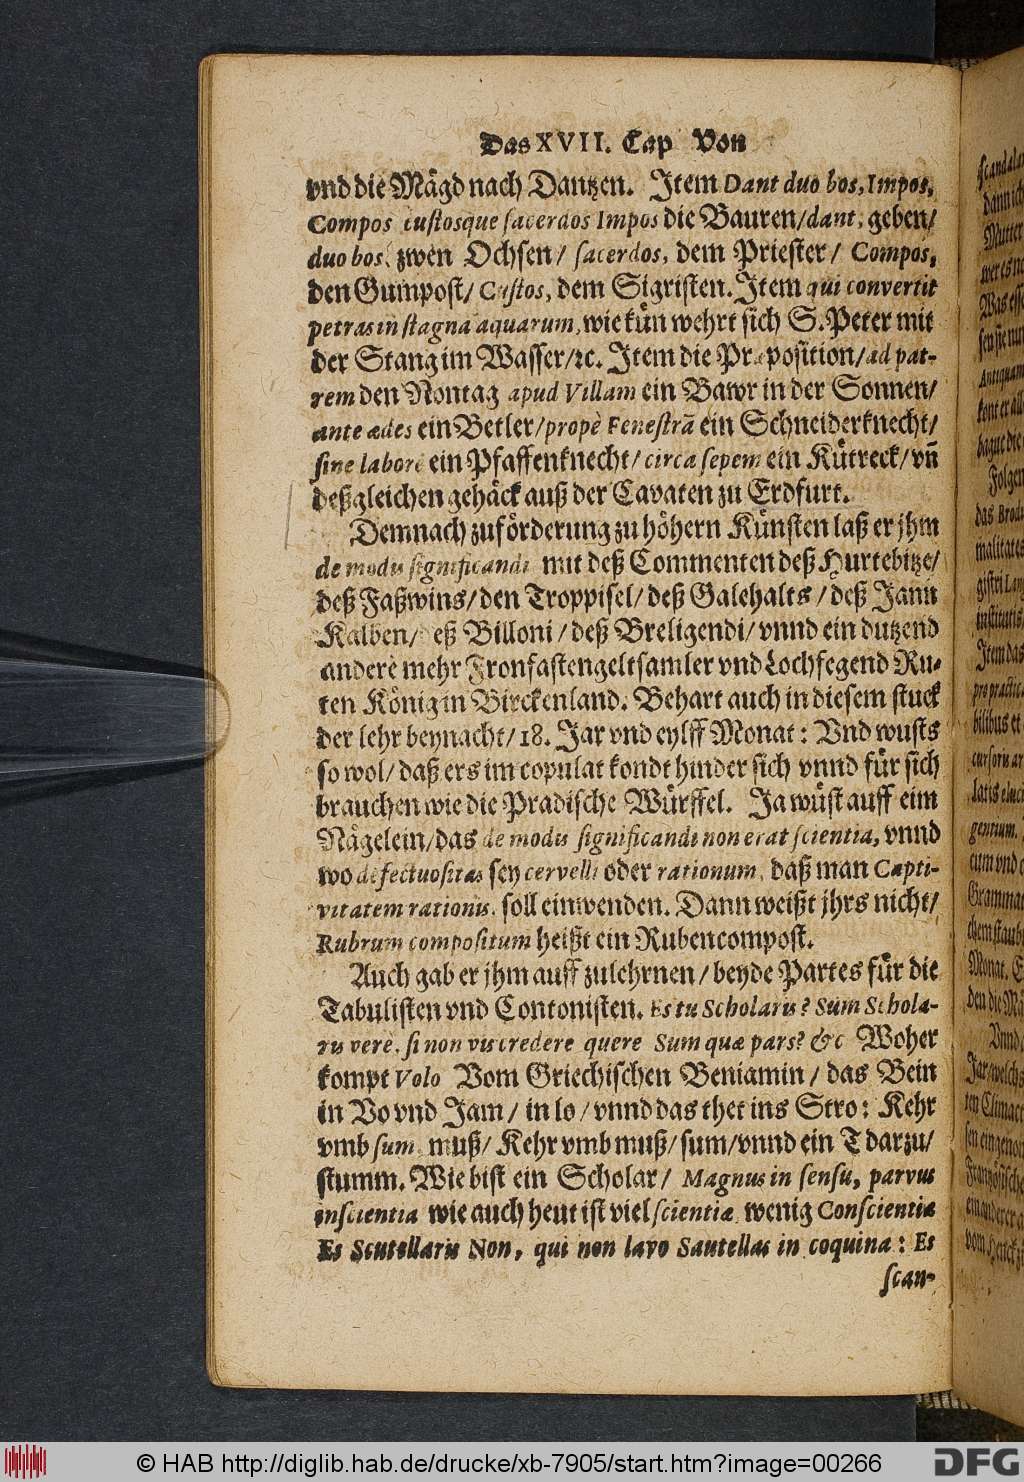 Das XVII. Cap Von
vnd die Mägd nach Dantzen. Item Dant duo bos, Impos,
Compos custosque sacerdos Impos die Bauren/dant, geben/
duo bos, zwen Ochsen/ sacerdos, dem Priester/ Compos,
den Gumpost/ Custos, dem Sigristen. Item qui convertit
petras in stagna aquarum, wie kün wehrt sich S. Peter mit
der Stang im Wasser/ꝛc. Item die Præposition/ad pat-
rem den Nontag apud Villam ein Bawr in der Sonnen/
ante ædes ein Betler/propè Fenestrã ein Schneiderknecht/
sine labore ein Pfaffenknecht/circa sepem ein Kütreck/vn̄
deßgleichen gehäck auß der Cavaten zu Erdfurt.
Demnach zuförderung zu höhern Künsten laß er jhm
de modu significandi mit deß Commenten deß Hurtebitze/
deß Faßwins/den Troppisel/deß Galehalts/deß Jann
Kalben/ eß Billoni/deß Breligendi/vnnd ein dutzend
andere mehr Fronfastengeltsamler vnd Lochfegend Ru-
ten König in Birckenland. Behart auch in diesem stuck
der lehr beynacht/18. Jar vnd eylff Monat: Vnd wusts
so wol/daß ers im copulat kondt hinder sich vnnd für sich
brauchen wie die Pradische Würffel. Ja wüst auff eim
Nägelein/das de modis significandi non erat scientia, vnnd
wo defectuositas sey cervelli oder rationum, daß man Capti-
vitatem rationis. soll einwenden. Dann weißt jhrs nicht/
Rubrum compositum heißt ein Rubencompost.
Auch gab er jhm auff zulehrnen/beyde Partes für die
Tabulisten vnd Contonisten. Es tu Scholaris? Sum Schola-
ris verè, si non vis credere quere Sum quæ pars? &c Woher
kompt Volo Vom Griechischen Beniamin/das Bein
in Vo vnd Jam/in lo/vnnd das thet ins Stro: Kehr
vmb sum, muß/Kehr vmb muß/sum/vnnd ein T darzu/
stumm. Wie bist ein Scholar/ Magnus in sensu, parvus
inscientia wie auch heut ist viel scientiæ, wenig Conscientiæ
Es Scutellaris Non, qui non lavo Sautellas in coquina: Es
scan-
© HAB http://diglib.hab.de/drucke/xb-7905/start.htm?image=00266
DFG